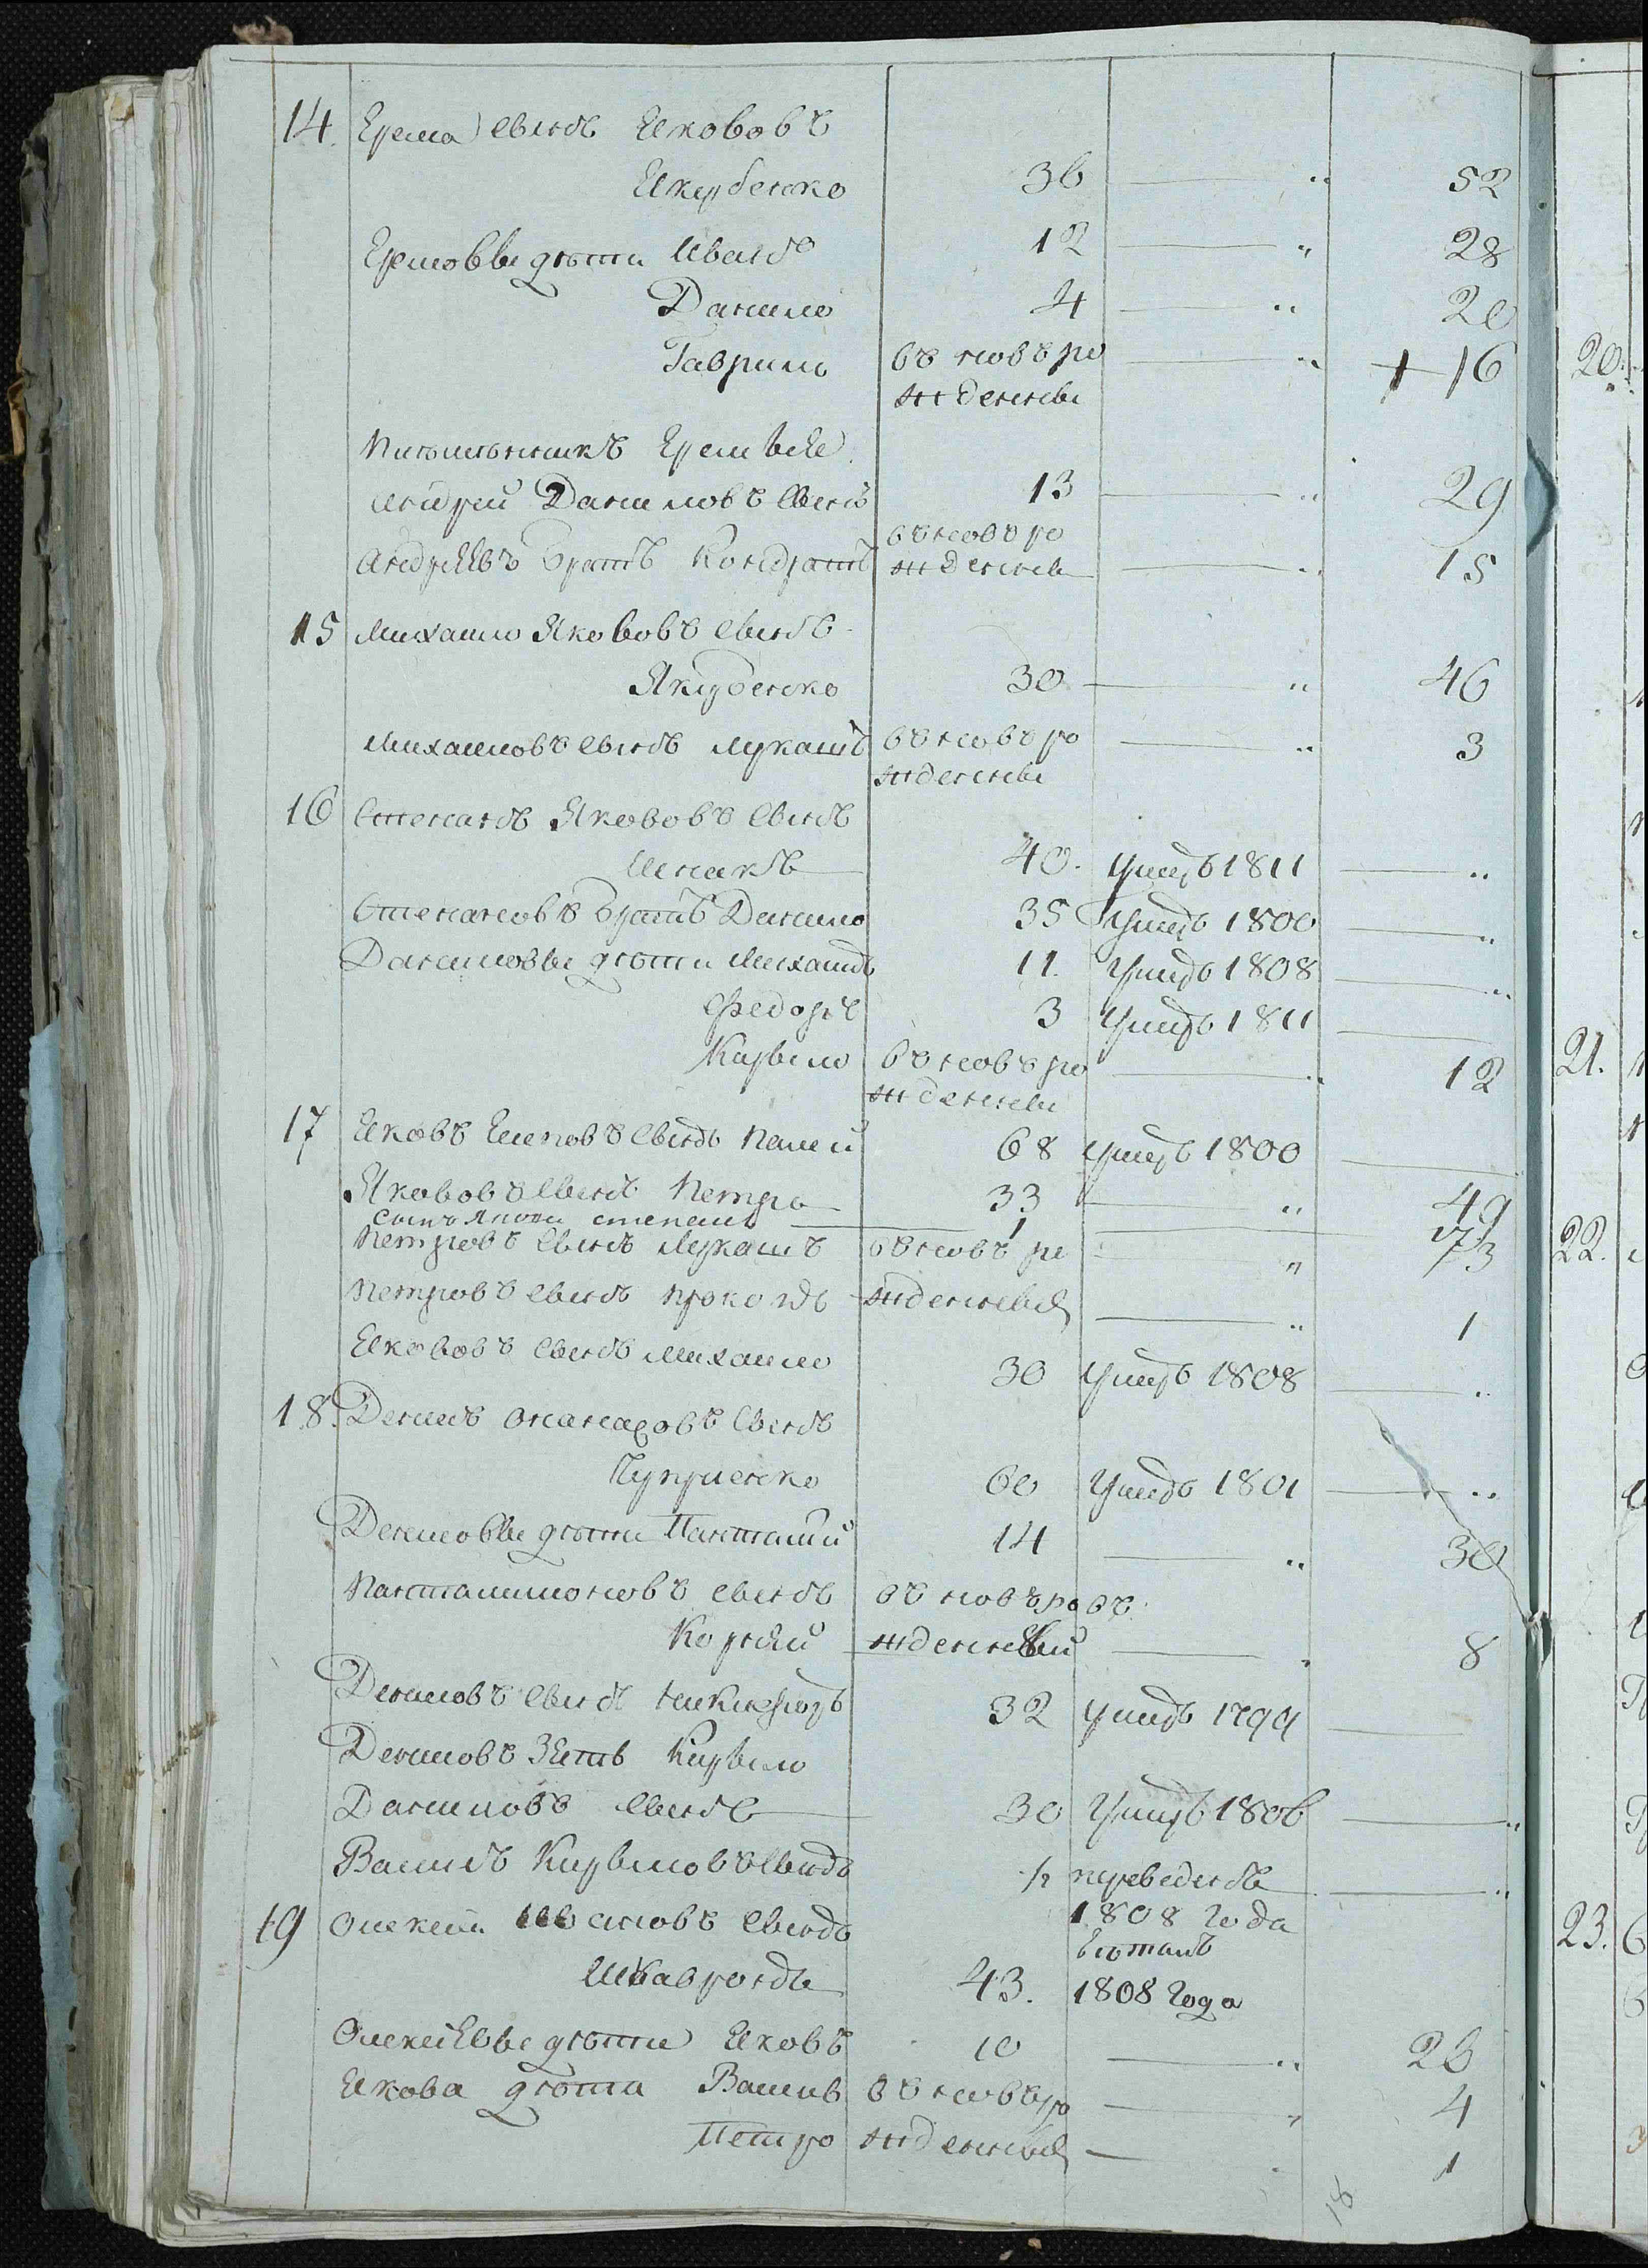 14. Ерема сынъ Якововъ
Якубенко 36 52
Еремовы дѣти Иванъ 12 28
Данило 4 20
Гаврило въ новъ ро 16
жденны
Ереміевъ
Андрей Даниловъ сынъ 13 29
въ новъ ро
Андреевъ братъ Кондратъ жденны 15
15 Михайло Якововъ сынъ
Якубенко 30 46
Михайловъ сынъ Лукашъ въ новъ ро 3
жденны
16 Степанъ Якововъ сынъ
40. умеръ 1811
Степановъ братъ Данило 35 умеръ 1800
Даниловы дѣти Михайло 11. умеръ 1808
Федоръ 3 умеръ 1811
Кирыло въ новъ ро 12
жденны
17 Яковъ сынъ Палей 68 умеръ 1800
Якововъ сынъ Петро 33 49
сынъ Якова степанъ 1 17
Петровъ сынъ Лукашъ въ новъ ро 3
Петровъ сынъ Прокопъ жденныя 1
Якововъ сынъ Михайло 30 умеръ 1808
18. Денисъ сынъ
60 умеръ 1801
Денисовы дѣти 14 30
Панталимоновъ сынъ въ новъ ро въ
Корнѣй жденный 8
Денисовъ сынъ Никифоръ 32 умеръ 1799
Денисовъ Зять Кирыло
Даниловъ сынъ 30 умеръ 1806
Василь Кирыловъ сынъ 1/2 переведенъ
19 Олексѣй сынъ 1808 года
бѣжалъ
43. 1808 года
Олексѣевы дѣти Яковъ 10 26
Якова дѣти Василь въ новъ ро 4
Петро жденныя 1
18
20.
21.
22.
23.